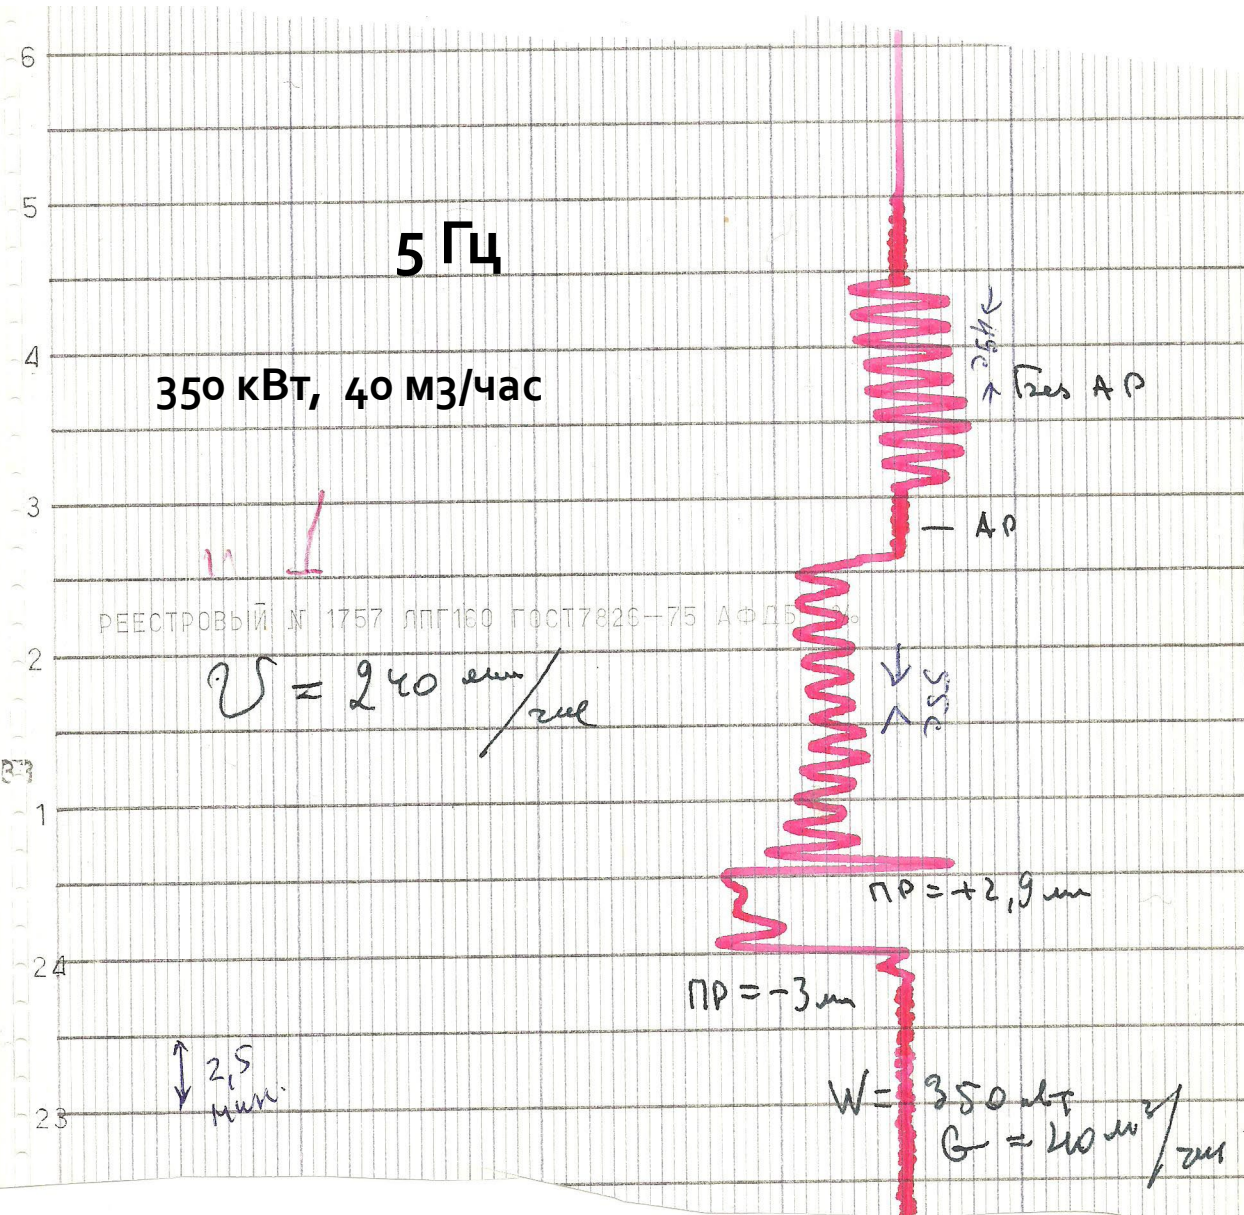 6
5
5 Гц
4
350 кВт, 40 м3/час
Без АР
3
— АР
РЕЕСТРОВЫЙ N 1757 ЛПГ160 ГОСТ7826-75
2
V = 240 мм/час
1
ПР = +2,9 мм
24
ПР = -3 мм
2,5
мин.
23
W = 350 кВт
G = 40 м³/час